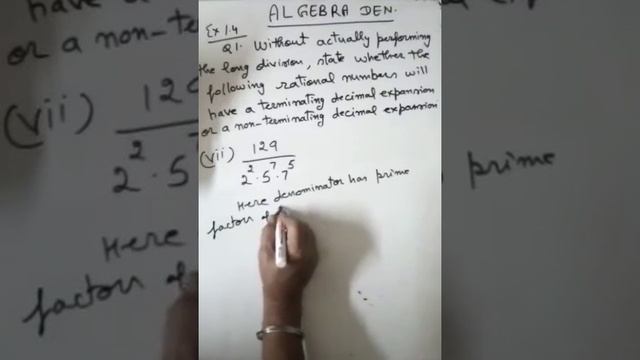 ALGEBRA DEN.
Ex 1.4
Q1. Without actually performing
the long division, state whether the
following rational numbers will
have a terminating decimal expansion
or a non-terminating decimal expansion
(vii) 129
2². 5⁷. 7⁵
Here denominator has prime
factors of